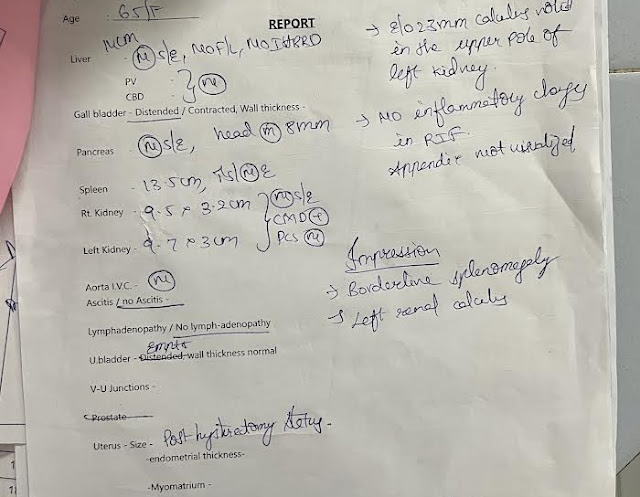 Age : 65/F
REPORT
NCM
Liver - (N) S/E, NO F/L, NO IHBRD
PV -
CBD - } (N)
Gall bladder - Distended / Contracted, Wall thickness -
Pancreas - (N) S/E, head (N) 8mm
Spleen - 13.5cm, (N) E
Rt. Kidney - 9.5 x 3.2cm } (N) S/E
CMD (+)
Left Kidney - 9.7 x 3cm PCS (N)
Aorta I.V.C. - (N)
Ascitis / no Ascitis -
Lymphadenopathy / No lymph-adenopathy
Empty
U.bladder - Distended, wall thickness normal
V-U Junctions -
Prostate
Uterus - Size - Post hysterectomy status -
-endometrial thickness-
-Myomatrium -
→ E/O 23mm calculus noted
in the upper pole of
left kidney.
→ NO inflammatory changes
in RIF.
Appendix not visualized
Impression
→ Borderline splenomegaly
→ Left renal calculus